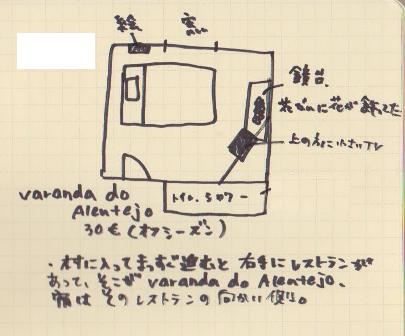 絵
窓
鏡台
花びんに花が飾ってた
上の方に小さいTV
トイレ・シャワー
varanda do
Alentejo
30€(オフシーズン)
・村に入ってまっすぐ進むと右手にレストランが
あって、そこが varanda do Alentejo.
宿はそのレストランの向かい側。